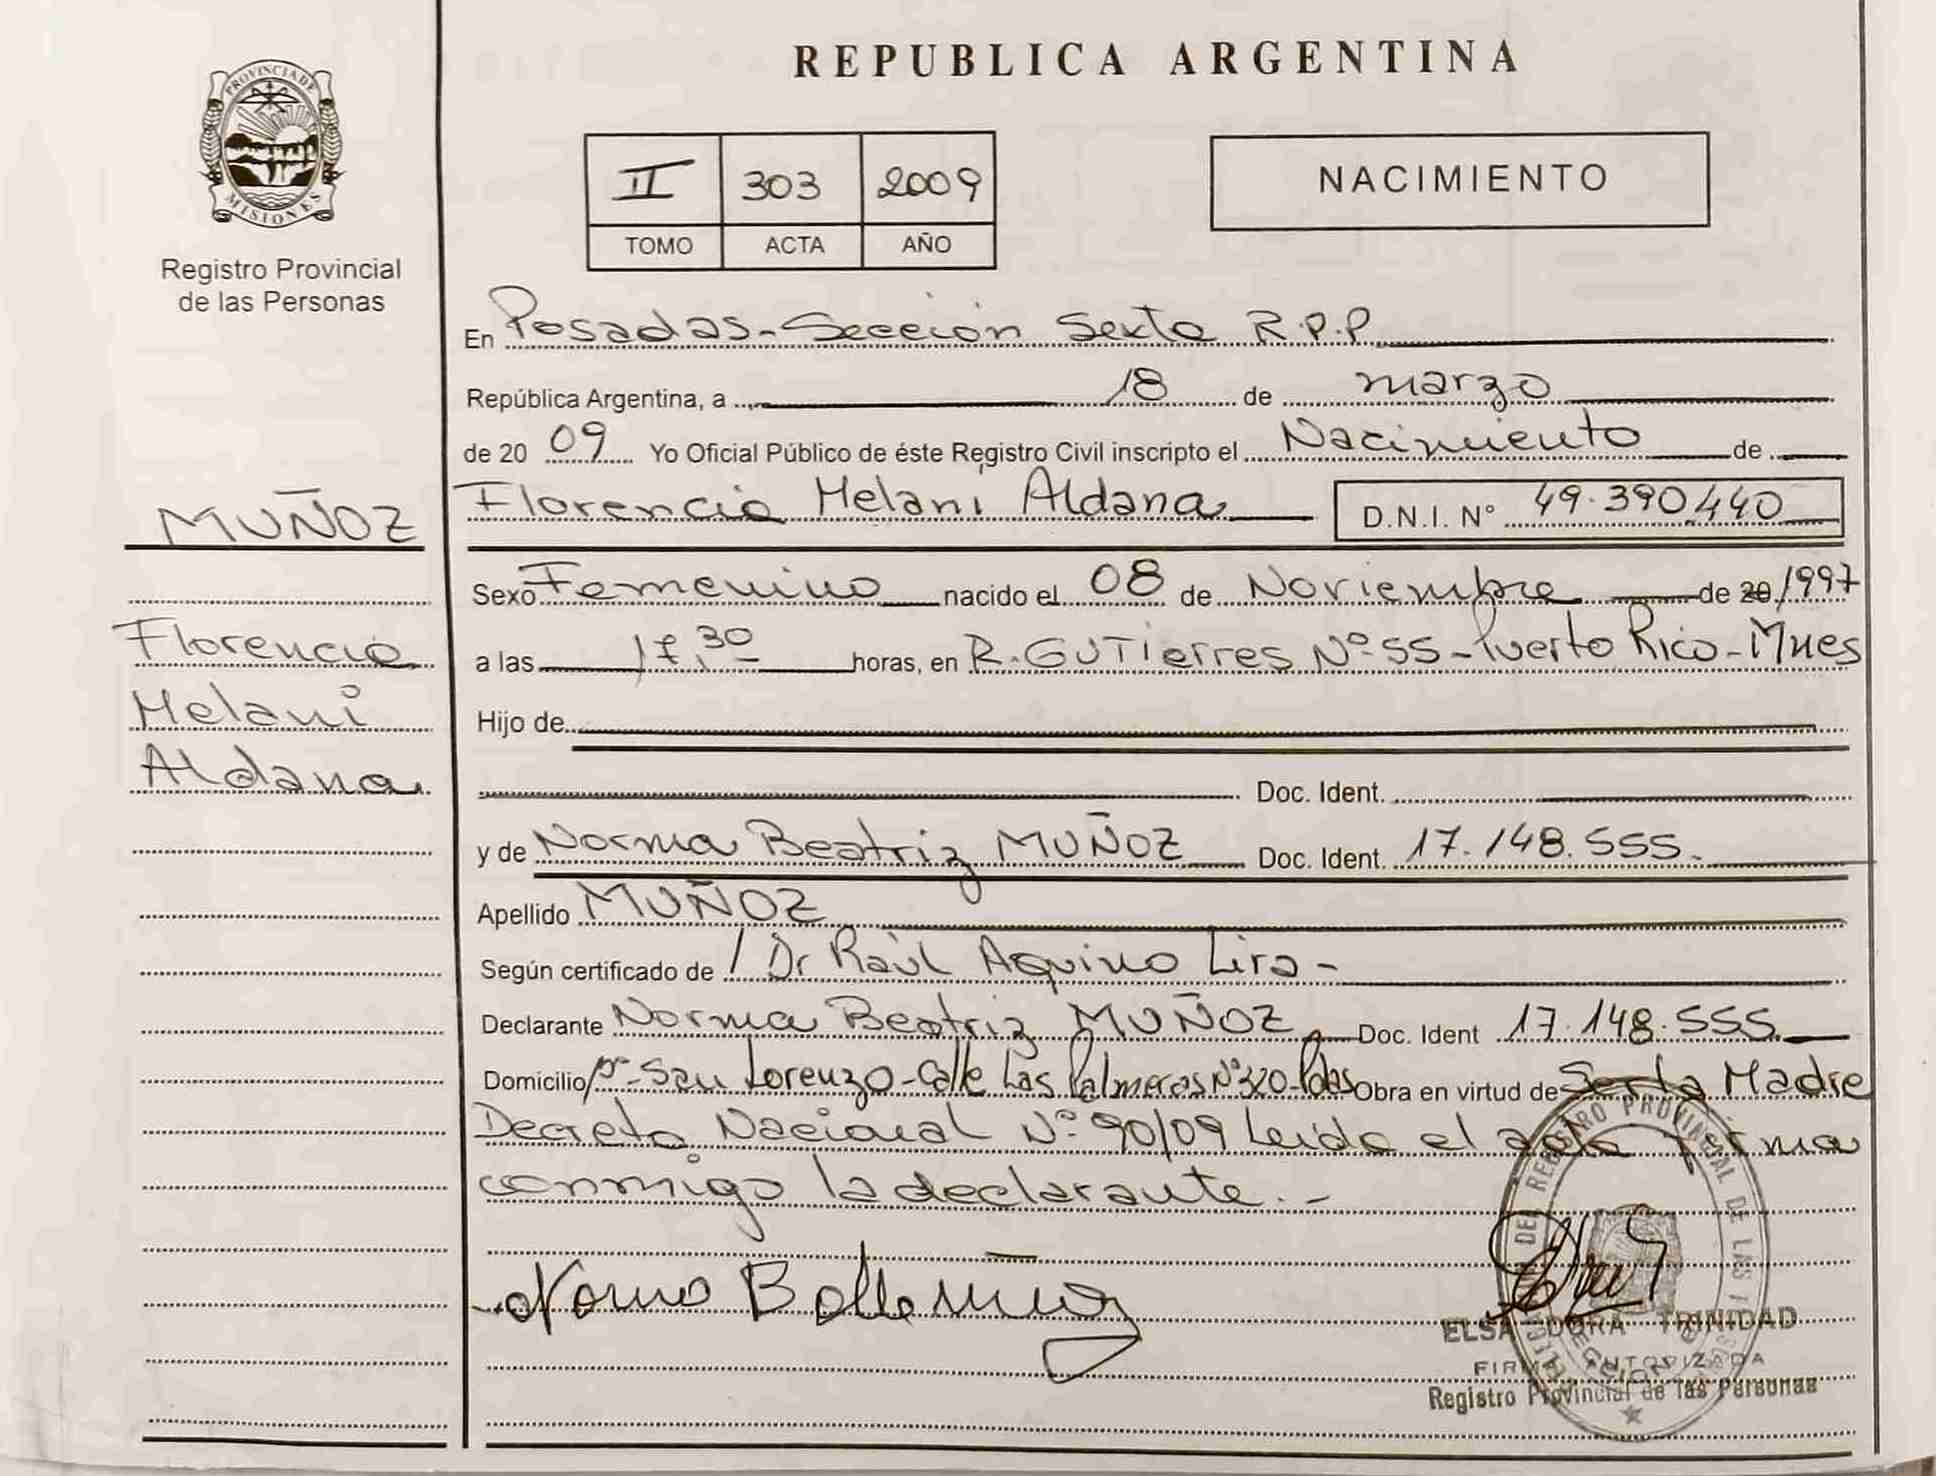 REPUBLICA ARGENTINA
PROVINCIA DE
MISIONES
Registro Provincial
de las Personas
II 303 2009
TOMO ACTA AÑO
NACIMIENTO
En Posadas - Sección Sexta R.P.P.
República Argentina, a 18 de marzo
de 20 09 Yo Oficial Público de éste Registro Civil inscripto el Nacimiento de
MUÑOZ
Florencia
Melani
Aldana
Florencia Melani Aldana D.N.I. N° 49.390.440
Sexo Femenino nacido el 08 de Noviembre de 20 1997
a las 17,30 horas, en R. GUTierres N° 55 - Puerto Rico - Mnes
Hijo de
Doc. Ident.
y de Norma Beatriz MUÑOZ Doc. Ident. 17.148.555.
Apellido MUÑOZ
Según certificado de / Dr Raúl Aquino Lira -
Declarante Norma Beatriz MUÑOZ Doc. Ident 17.148.555.
Domicilio San Lorenzo - Calle Las Palmeras N° 320 - Pdas Obra en virtud de Madre
Decreto Nacional N° 90/09 Leída el acta firma
conmigo la declarante. -
ELSA DORA TRINIDAD
FIRMA AUTORIZADA
Registro Provincial de las Personas